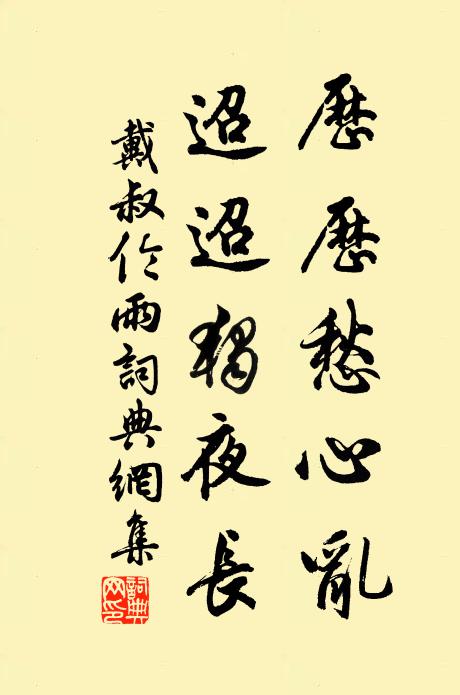 歷歷愁心亂
迢迢獨夜長
戴叔伦雨詞典網集
詞典网印